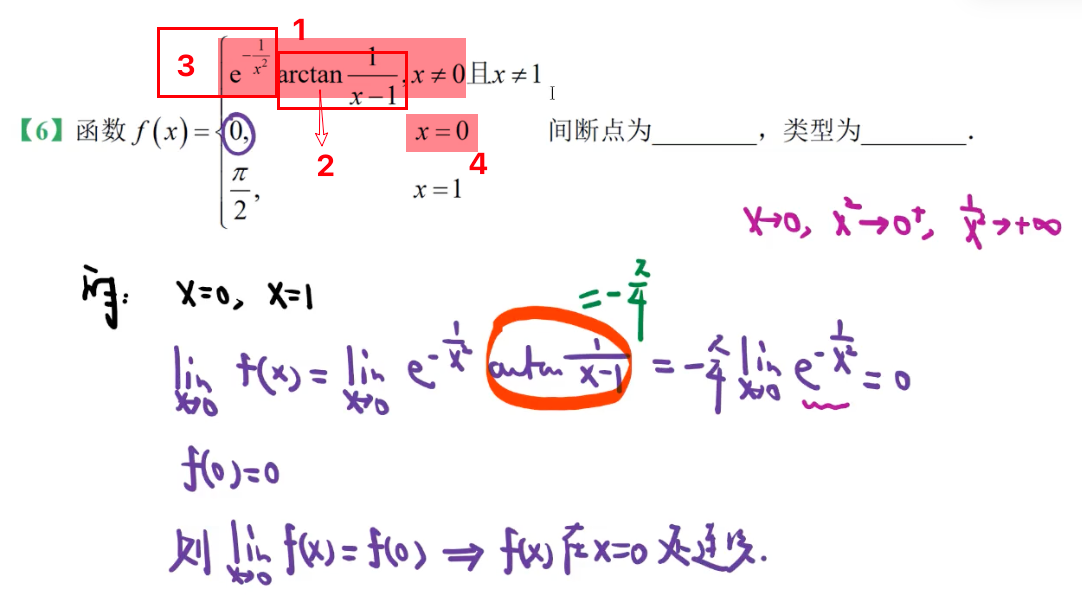 1
3
e^{-\frac{1}{x^2}} arctan \frac{1}{x-1}, x≠0且x≠1
【6】函数 f(x)= { 0, x=0 间断点为________，类型为________.
2
4
\frac{π}{2}, x=1
x→0, x²→0⁺, \frac{1}{x²}→+∞
x=0, x=1
=-\frac{π}{4}
\lim_{x→0} f(x) = \lim_{x→0} e^{-\frac{1}{x²}} arctan \frac{1}{x-1} = -\frac{π}{4} \lim_{x→0} e^{-\frac{1}{x²}} = 0
f(0)=0
则 \lim_{x→0} f(x) = f(0) ⇒ f(x) 在 x=0 处连续.